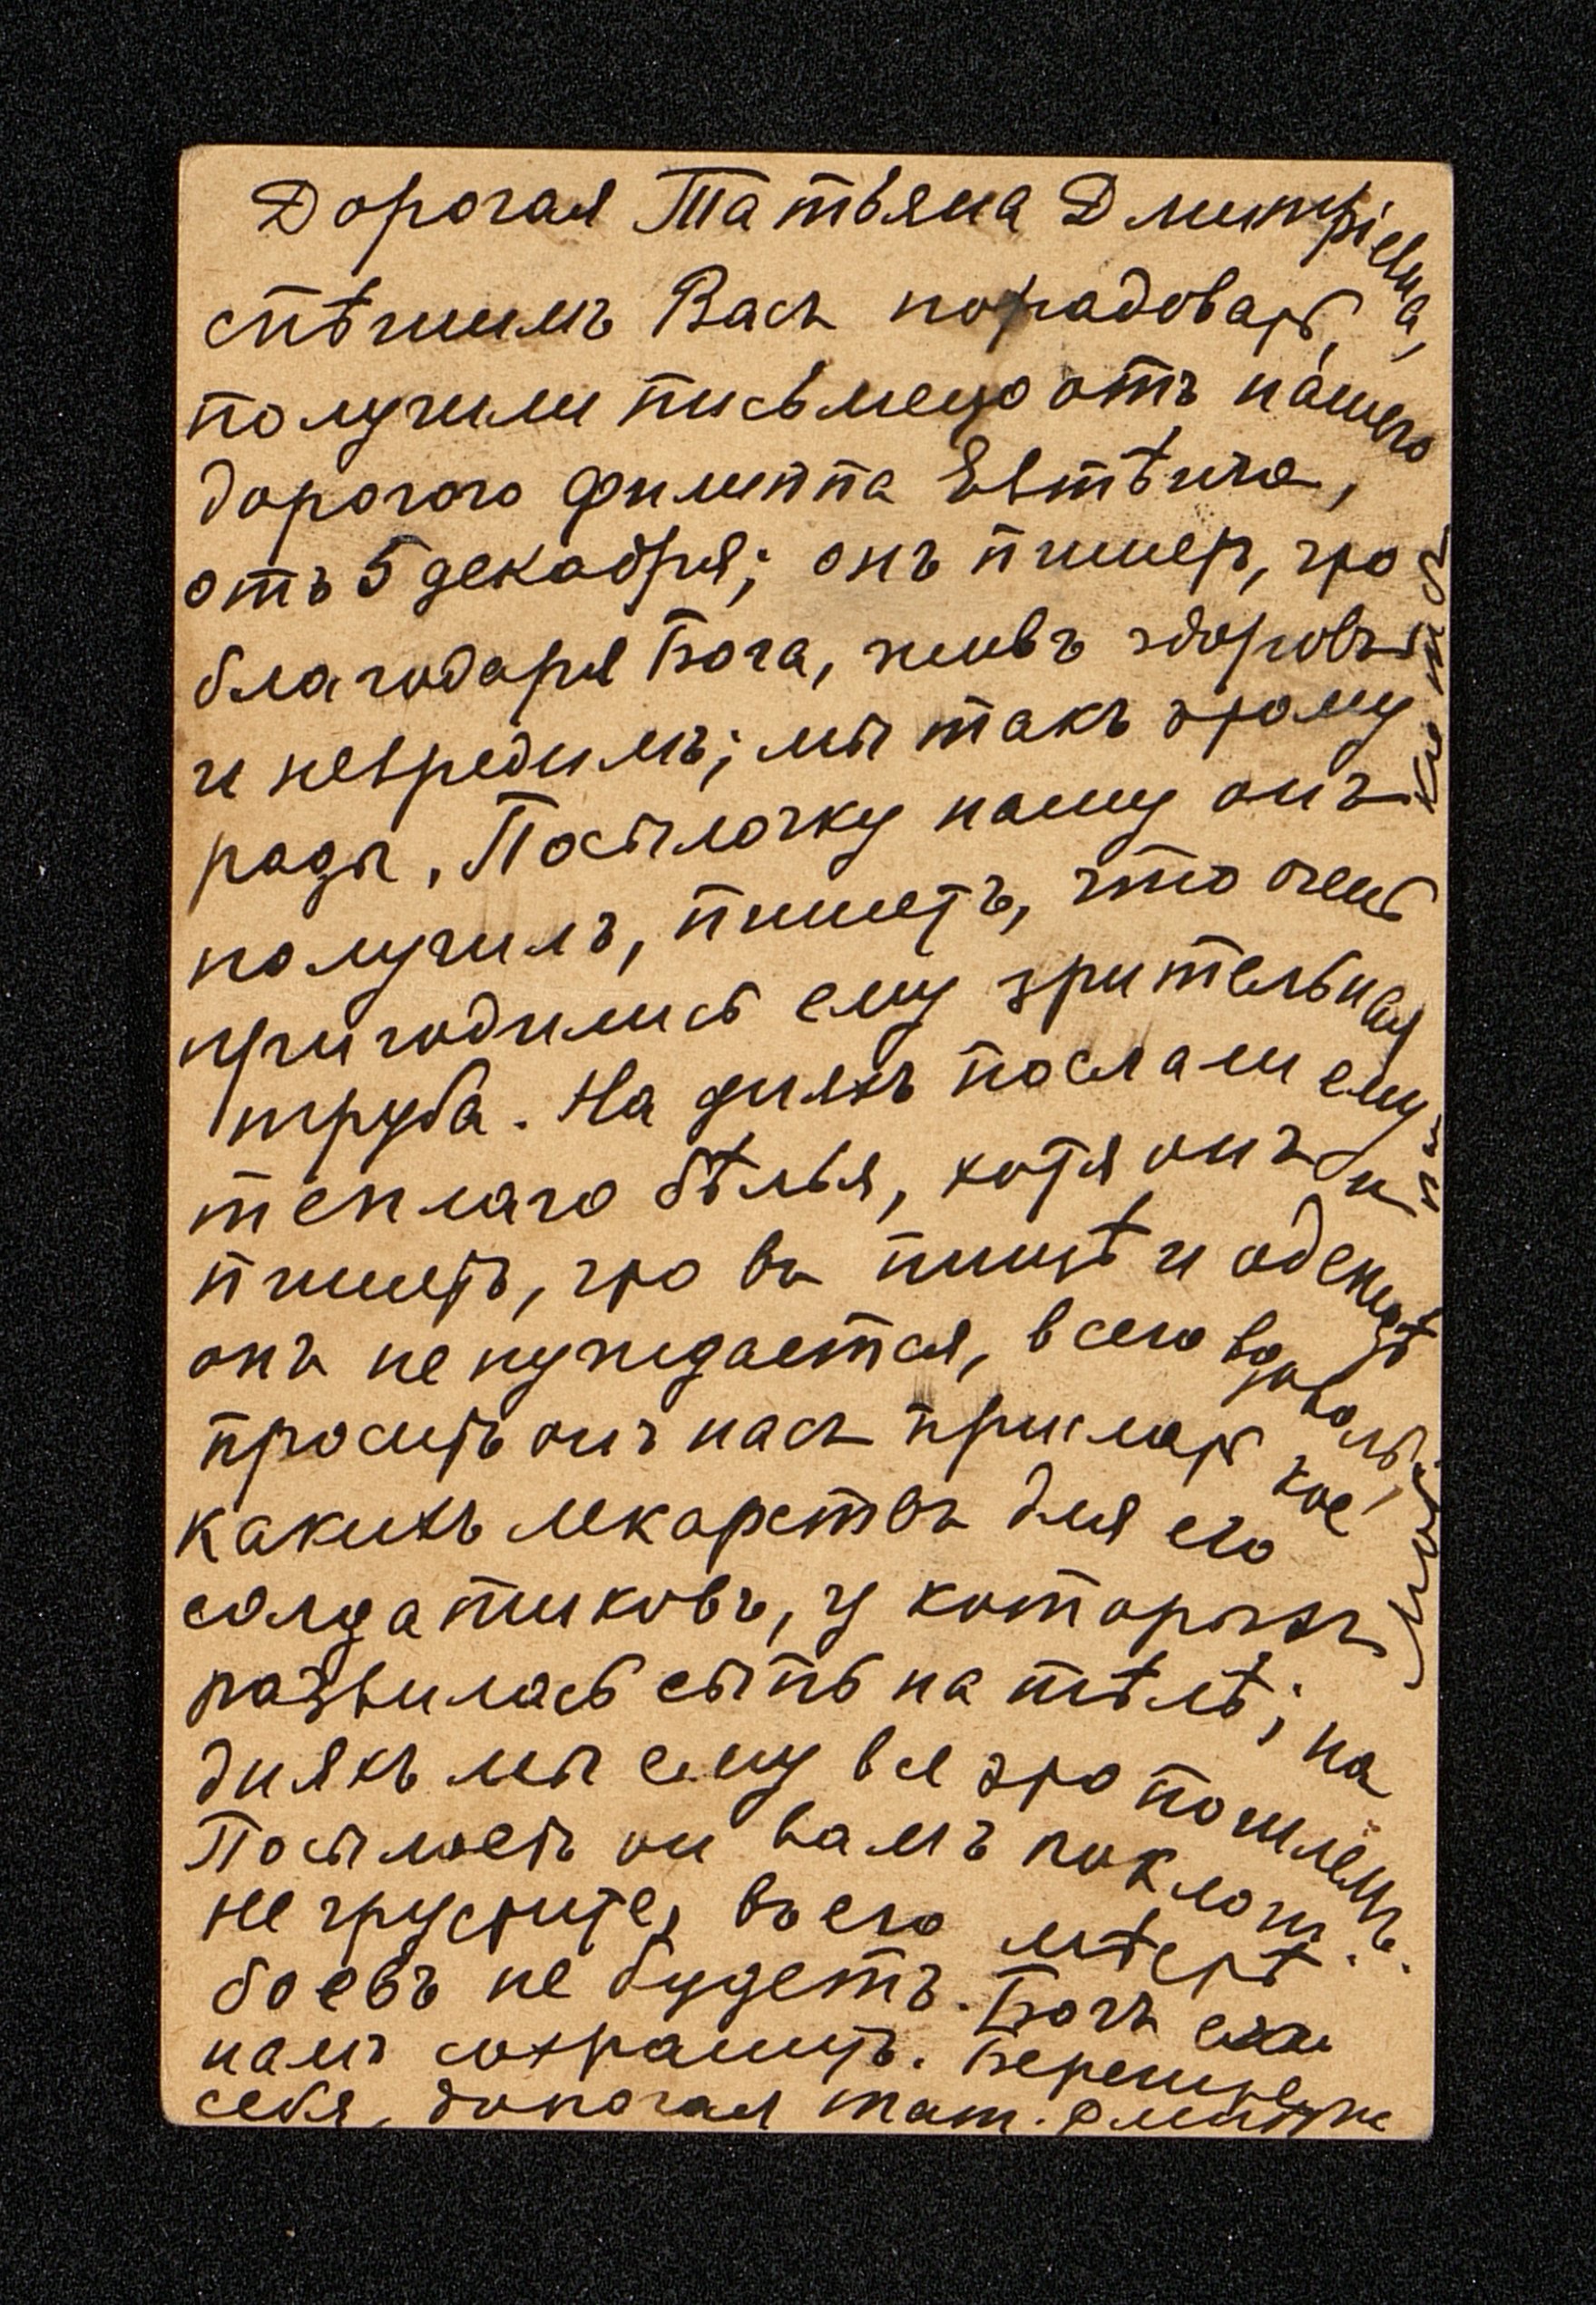 Дорогая Татьяна Дмитріевна,
спѣшимъ Васъ порадовать,
получили письмецо отъ нашего
дорогого Филиппа Евтѣича,
отъ 5 декабря; онъ пишетъ, что
благодаря Бога, живъ здоровъ
и невредимъ; мы такъ этому
рады. Посылочку нашу онъ
получилъ, пишетъ, что очень
пригодились ему зрительная
труба. На дняхъ послали ему
теплаго бѣлья, хотя онъ и
пишетъ, что въ пищѣ и одеждѣ
онъ не нуждается, всего вдоволь.
проситъ онъ насъ прислать кое
какихъ лекарствъ для его
солдатиковъ, у которыхъ
развилась сыпь на тѣлѣ; на
дняхъ мы ему все это пошлемъ.
Посылаетъ он вамъ поклон.
не грустите, въ его мѣстѣ
боевъ не будетъ. Богъ его
намъ сохранитъ. Берегите
себя, дорогая Тат. Дмитр